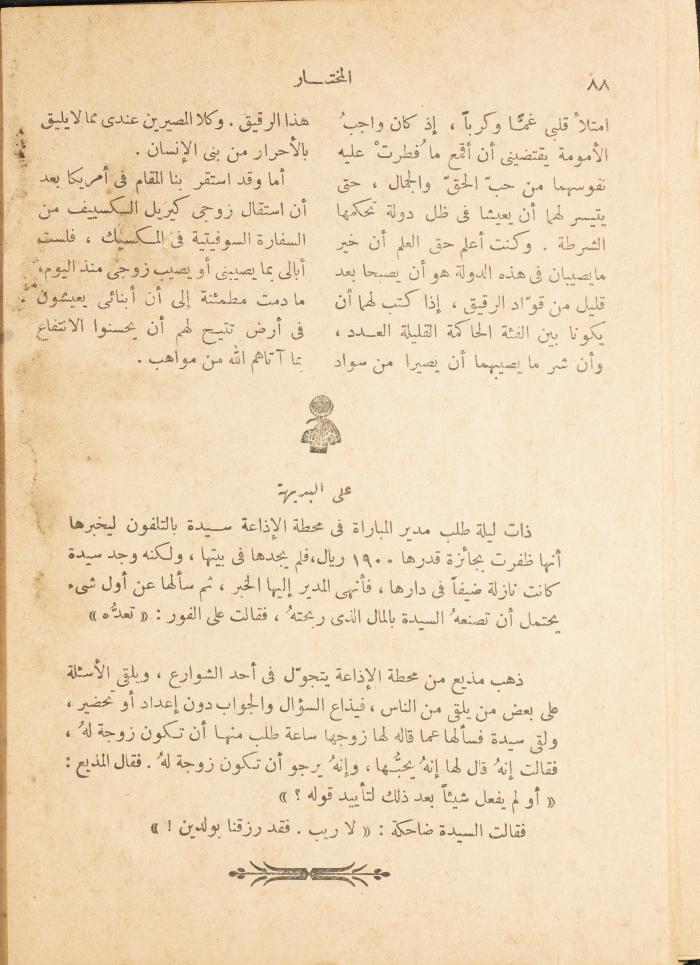 ٨٨
المختـــار
امتلأ قلبي غمًّا وكرباً ، إذ كان واجبُ
الأمومة يقتضيني أن أقمع ما فُطرتْ عليه
نفوسهما من حبّ الحقّ والجمال ، حتى
يتيسر لهما أن يعيشا فى ظل دولة تحكمها
الشرطة . وكنت أعلم حق العلم أن خير
مايصيبان فى هذه الدولة هو أن يصبحا بعد
قليل من قوّاد الرقيق ، إذا كتب لهما أن
يكونا بين الفئة الحاكمة القليلة العــدد ،
وأن شر ما يصيبهما أن يصيرا من سواد
هذا الرقيق . وكلا المصيرين عندى مما لايليق
بالأحرار من بنى الإنسان .
أما وقد استقر بنا المقام فى أمريكا بعد
أن استقال زوجى كيريل الـكسييف من
السفارة السوفيتية فى المـكسيك ، فلست
أبالى بما يصيبنى أو يصيب زوجى منذ اليوم،
ما دمت مطمئنة إلى أن أبنائى يعيشون
فى أرض تتيح لهم أن يحسنوا الانتفاع
بما آتاهم الله من مواهب .
على البديهة
ذات ليلة طلب مدير المباراة فى محطة الإذاعة سـيدة بالتلفون ليخبرها
أنها ظفرت بجائزة قدرها ١٩٠٠ ريال،فلم يجدها فى بيتها ، ولكنه وجد سيدة
كانت نازلة ضيفاً فى دارها ، فأنهى المدير إليها الخبر ، ثم سألها عن أول شىء
يحتمل أن تصنعهُ السيدة بالمال الذى ربحتهُ ، فقالت على الفور : « تعدُّه »
ذهب مذيع من محطة الإذاعة يتجوّل فى أحد الشوارع ، ويلقى الأسئلة
على بعض من يلقى من الناس ، فيذاع السؤال والجواب دون إعداد أو تحضير ،
ولقى سيدة فسألها عما قاله لها زوجها ساعة طلب منهـا أن تـكون زوجة لهُ ،
فقالت إنهُ قال لها إنهُ يحبُّـها ، وإنهُ يرجو أن تـكون زوجة لهُ . فقال المذيع :
« أو لم يفعل شيئاً بعد ذلك لتأييد قوله ؟ »
فقالت السيدة ضاحكة : « لا ريب . فقد رزقنا بولدين ! »